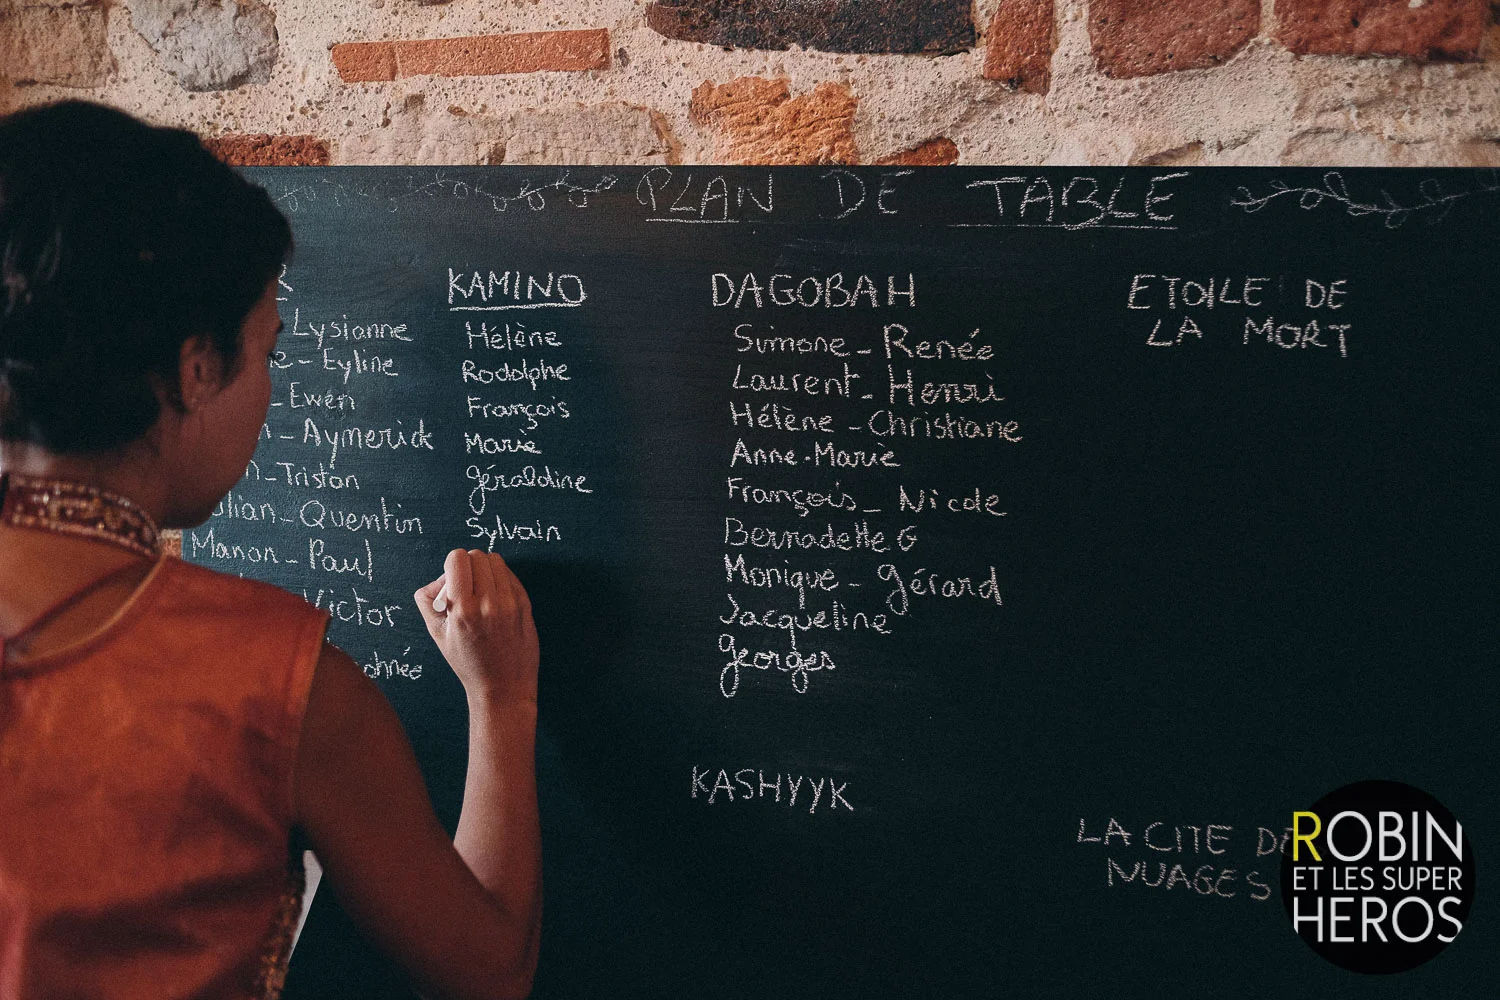 PLAN DE TABLE
Lysianne
Eyline
Ewen
Aymerick
Tristan
Quentin
Manon - Paul
Victor
KAMINO
Hélène
Rodolphe
François
Marie
Géraldine
Sylvain
DAGOBAH
Simone - Renée
Laurent - Henri
Hélène - Christiane
Anne-Marie
François - Nicole
Bernadette G
Monique - Gérard
Jacqueline
Georges
ETOILE DE
LA MORT
KASHYYK
LA CITE
NUAGES
ROBIN
ET LES SUPER
HEROS